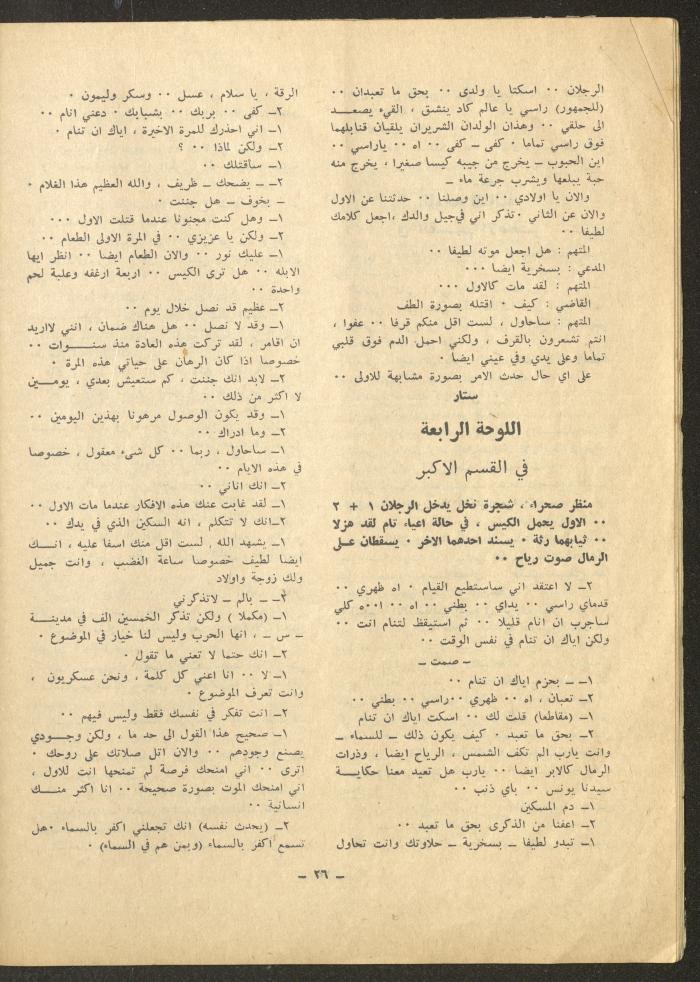 الرجلان ٠٠ اسكتا يا ولدى ٠٠ بحق ما تعبدان ٠٠
(للجمهور) راسي يا عالم كاد ينشق ، القيء يصعد
الى حلقي ٠٠ وهذان الولدان الشريران يلقيان قنابلهما
فوق راسي تماما ٠ كفى ــ كفى ٠٠ اه ٠٠ ياراسي ٠٠
اين الحبوب ــ يخرج من جيبه كيسا صغيرا ، يخرج منه
حبة يبلعها ويشرب جرعة ماء ــ
والان يا اولادي ٠٠ اين وصلنا ٠٠ حدثتنا عن الاول
والان عن الثاني ٠ تذكر اني في جيل والدك ،اجعل كلامك
لطيفا ٠٠
المتهم : هل اجعل موته لطيفا ٠٠
المدعي : بسخرية ايضا ٠٠٠
المتهم : لقد مات كالاول ٠٠٠
القاضي : كيف ٠ اقتله بصورة الطف
المتهم : ساحاول ، لست اقل منكم قرفا ٠٠ عفوا ،
انتم تشعرون بالقرف ، ولكني احمل الدم فوق قلبي
تماما وعلى يدي وفي عيني ايضا ٠
على اي حال حدث الامر بصورة مشابهة للاولى ٠٠
ستار
اللوحة الرابعة
في القسم الاكبر
منظر صحراء ، شجرة نخل يدخل الرجلان ١ + ٢
٠٠ الاول يحمل الكيس ، في حالة اعياء تام لقد هزلا
٠٠ ثيابهما رثة ٠ يسند احدهما الاخر ٠ يسقطان على
الرمال صوت رياح ٠٠
٢ــ لا اعتقد اني ساستطيع القيام ٠ اه ظهري ٠٠
قدماي راسي ٠٠ يداي ٠٠ بطني ٠٠ اه ٠٠ ااه كلي
ساجرب ان انام قليلا ٠٠ ثم استيقظ لتنام انت ٠٠
ولكن اياك ان تنام في نفس الوقت ٠٠
ــ صمت ــ
١ــ ــ بحزم اياك ان تنام ٠٠
٢ــ تعبان ، اه ٠٠ ظهري ٠٠راسي ٠٠ بطني ٠٠
١ــ (مقاطعا) قلت لك ٠٠ اسكت اياك ان تنام
٢ــ بحق ما تعبد ٠ كيف يكون ذلك ــ للسماء ــ
وانت يارب الم تكف الشمس ، الرياح ايضا ، وذرات
الرمال كالابر ايضا ٠٠ يارب هل تعيد معنا حكاية
سيدنا يونس ٠٠ باي ذنب ٠٠
١ــ دم المسكين
٢ــ اعفنا من الذكرى بحق ما تعبد ٠٠
١ــ تبدو لطيفا ــ بسخرية ــ حلاوتك وانت تحاول
الرقة ، يا سلام ، عسل ٠٠ وسكر وليمون ٠
٢ــ كفى ٠٠ بربك ٠٠ بشبابك ٠ دعني انام ٠٠
١ــ اني احذرك للمرة الاخيرة ، اياك ان تنام ٠
٢ــ ولكن لماذا ٠٠ ؟
١ــ ساقتلك ٠٠
٢ــ ــ يضحك ــ ظريف ، والله العظيم هذا الغلام ٠
ــ بخوف ــ هل جننت ٠
١ــ وهل كنت مجنونا عندما قتلت الاول ٠٠٠
٢ــ ولكن يا عزيزي ٠٠ في المرة الاولى الطعام ٠٠
١ــ عليك نور ٠٠ والان الطعام ايضا ٠٠ انظر ايها
الابله ٠٠ هل ترى الكيس ٠٠ اربعة ارغفه وعلبة لحم
واحدة ٠٠
٢ــ عظيم قد نصل خلال يوم ٠٠
١ــ وقد لا نصل ٠٠ هل هناك ضمان ، انني لااريد
ان اقامر ، لقد تركت هذه العادة منذ سنوات ٠٠
خصوصا اذا كان الرهان على حياتي هذه المرة ٠
٢ــ لابد انك جننت ، كم ستعيش بعدي ، يومين
لا اكثر من ذلك ٠٠
١ــ وقد يكون الوصول مرهونا بهذين اليومين ٠٠
٢ــ وما ادراك ٠٠
١ــ ساحاول ، ربما ٠٠ كل شيء معقول ، خصوصا
في هذه الايام ٠٠
٢ــ انك اناني ٠٠
١ــ لقد غابت عنك هذه الافكار عندما مات الاول ٠٠
٢ــ انك لا تتكلم ، انه السكين الذي في يدك ٠٠
١ــ يشهد الله , لست اقل منك اسفا عليه ، انك
ايضا لطيف خصوصا ساعة الغضب ، وانت جميل
ولك زوجة واولاد
٢ــ ــ بالم ــ لاتذكرني
١ــ (مكملا ) ولكن تذكر الخمسين الف في مدينة
ــ س ــ ، انها الحرب وليس لنا خيار في الموضوع ٠
٢ــ انك حتما لا تعني ما تقول ٠
١ــ لا ٠٠ انا اعني كل كلمة ، ونحن عسكريون ،
وانت تعرف الموضوع ٠
٢ــ انت تفكر في نفسك فقط وليس فيهم ٠٠
١ــ صحيح هذا القول الى حد ما ، ولكن وجودي
يصنع وجودهم ٠٠ والان اتل صلاتك على روحك ٠
اترى ٠٠ اني امنحك فرصة لم تمنحها انت للاول ،
اني امنحك الموت بصورة صحيحة ٠٠ انا اكثر منك
انسانية ٠٠
٢ــ (يحدث نفسه) انك تجعلني اكفر بالسماء ٠هل
تسمع اكفر بالسماء (وبمن هم في السماء) ٠
ــ ٢٦ ــ